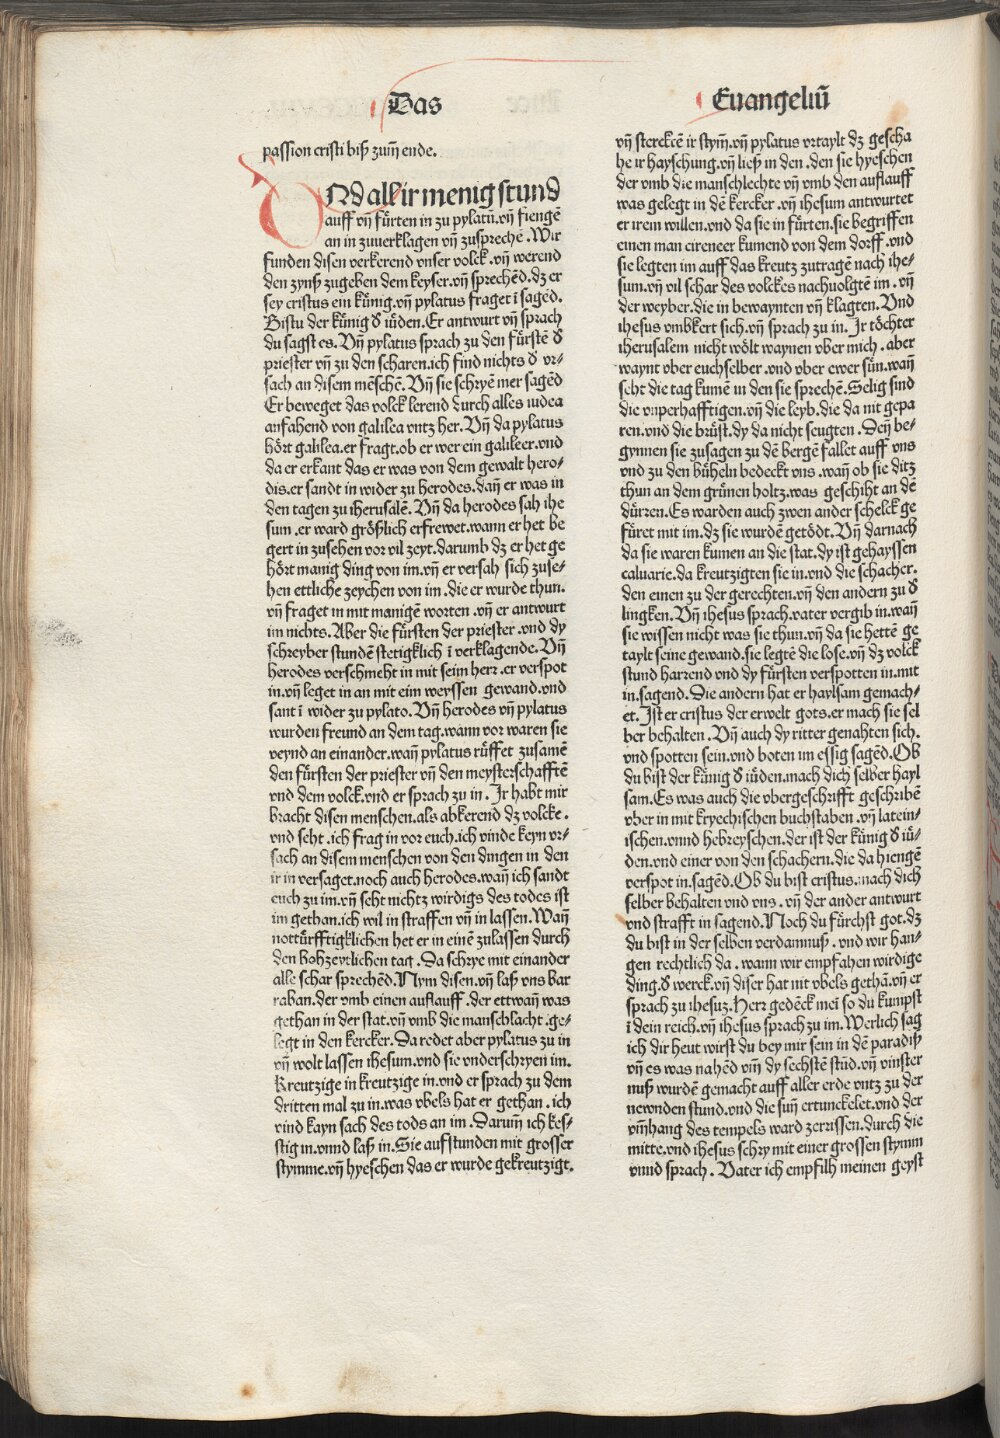 Das
Euangeliū
passion cristi biß zuım̄ ende.
VNd all ir menig stund
auff vn̄ fu̇rten in zu pylatū.vn̄ fiengē
an in zuuerklagen vn̄ zusprechē.Wir
funden disen verkerend vnser volck.vn̄ werend
den zynß zugeben dem keyser.vn̄ sprechēd.dz er
sey cristus ein ku̇nig.vn̄ pylatus fraget ī sagēd.
Bistu der ku̇nig d̕ iu̇den.Er antwurt vn̄ sprach
du sagst es.Vn̄ pylatus sprach zu den fu̇rstē d̕
priester vn̄ zu den scharen.ich find nichts d̕ vr⸗
sach an disem mēschē.Vn̄ sie schryē mer sagēd
Er beweget das volck lerend durch alles iudea
anfahend von galilea vntz her.Vn̄ da pylatus
hört galilea.er fragt.ob er wer ein galileer.vnd
da er erkant das er was von dem gewalt hero⸗
dis.er sandt in wider zu herodes.dan̄ er was in
den tagen zu iherusalē.Vn̄ da herodes sah ihe
sum.er ward größlich erfrewet.wann er het be
gert in zusehen vor vil zeyt.darumb dz er het ge
hört manig ding von im.vn̄ er versah sich zuse⸗
hen ettliche zeychen von im.die er wurde thun.
vn̄ fraget in mit manigē worten.vn̄ er antwurt
im nichts.Aber die fu̇rsten der priester.vnd dy
schreyber stundē stetigklich ī verklagende.Vn̄
herodes verschmeht in mit seim herr.er verspot
in.vn̄ leget in an mit eim weyssen gewand.vnd
sant ī wider zu pylato.Vn̄ herodes vn̄ pylatus
wurden freund an dem tag.wann vor waren sie
veynd an einander.wan̄ pylatus ru̇ffet zusamē
den fu̇rsten der priester vn̄ den meysterschafftē
vnd dem volck.vnd er sprach zu in.Ir habt mir
bracht disen menschen.als abkerend dz volcke.
vnd seht.ich frag in vor euch.ich vinde keyn vr⸗
sach an disem menschen von den dingen in den
ir in versaget.noch auch herodes.wan̄ ich sandt
euch zu im.vn̄ seht nichtz wirdigs des todes ist
im gethan.ich wil in straffen vn̄ in lassen.Wan̄
nottu̇rfftigklichen het er in einē zulassen durch
den hohzeytlichen tag.Da schrye mit einander
alle schar sprechēd.Nym disen.vn̄ laß vns bar
raban.der vmb einen auflauff.der ettwan̄ was
gethan in der stat.vn̄ vmb die manschlacht ge⸗
legt in den kercker.Da redet aber pylatus zu in
vn̄ wolt lassen ihesum.vnd sie vnderschryen im.
Kreutzige in kreutzige in.vnd er sprach zu dem
dritten mal zu in.was vbels hat er gethan.ich
vind kayn sach des tods an im.Darum̄ ich kes⸗
stig in.vnnd laß in.Sie aufstunden mit grosser
stymme.vn̄ hyeschen das er wurde gekreutzigt.
vn̄ sterckcē ir stym̄.vn̄ pylatus vrtaylt dz gescha
he ir hayschung.vn̄ ließ in den.den sie hyeschen
der vmb die manschlechte vn̄ vmb den auflauff
was gelegt in dē kercker.vn̄ ihesum antwurtet
er irem willen.vnd da sie in fu̇rten.sie begriffen
einen man cireneer kumend von dem dorff.vnd
sie legten im auff das kreutz zutragē nach ihe⸗
sum.vn̄ vil schar des volckes nachuolgtē im.vn̄
der weyber.die in bewaynten vn̄ klagten.Vnd
ihesus vmbkert sich.vn̄ sprach zu in.Ir töchter
iherusalem nicht wölt waynen vber mich.aber
waynt vber euchselber.vnd vber ewer su̇n.wan̄
seht die tag kumē in den sie sprechē.Selig sind
die vnperhafftigen.vn̄ die leyb.die da nit gepa
ren.vnd die bru̇st.dy da nicht seugten.Den̄ be⸗
gynnen sie zusagen zu dē bergē fallet auff vns
vnd zu den bu̇heln bedeckt vns.wan̄ ob sie ditz
thun an dem gru̇nen holtz.was geschiht an dē
du̇rzen.Es warden auch zwen ander schelck ge
fu̇ret mit im.dz sie wurdē getödt.Vn̄ darnach
da sie waren kumen an die stat.dy ist gehayssen
caluarie.da kreutzigten sie in.vnd die schacher.
den einen zu der gerechten.vn̄ den andern zu d̕
lingken.Vn̄ ihesus sprach.vater vergib in.wan̄
sie wissen nicht was sie thun.vn̄ da sie hettē ge
taylt seine gewand.sie legtē die lose.vn̄ dz volck
stund harrend vnd dy fu̇rsten verspotten in.mit
in.sagend.Die andern hat er haylsam gemach⸗
et.Ist er cristus der erwelt gots.er mach sie sel
ber behalten.Vn̄ auch dy ritter genahten sich.
vnd spotten sein.vnd boten im essig sagēd.Ob
du bist der ku̇nig d̕ iu̇den.mach dich selber hayl
sam.Es was auch die vbergeschrifft geschribē
vber in mit kryechischen buchstaben.vn̄ latein⸗
ischen.vnnd hebreyschen.der ist der ku̇nig d̕ iu̇⸗
den.vnd einer von den schachern.die da hiengē
verspot in.sagēd.Ob du bist cristus.mach dich
selber behalten vnd vns.vn̄ der ander antwurt
vnd strafft in sagend.Noch du fu̇rchst got.dz
du bist in der selben verdamnuß.vnd wir han⸗
gen rechtlich da.wann wir empfahen wirdige
ding.d̕ werck.vn̄ diser hat nit vbels gethā.vn̄ er
sprach zu ihesuz.Herr gedēck mei so du kumpst
ī dein reich.vn̄ ihesus sprach zu im.Werlich sag
ich dir heut wirst du bey mir sein in dē paradiß
vn̄ es was nahēd vm̄ dy sechstē stūd.vn̄ vinster
nuß wurdē gemacht auff aller erde vntz zu der
newnden stund.vnd die sun̄ ertunckelet.vnd der
vm̄hang des tempels ward zerrissen.durch die
mitte.vnd ihesus schry mit einer grossen stymm
vnnd sprach.Vater ich empfilh meinen geyst